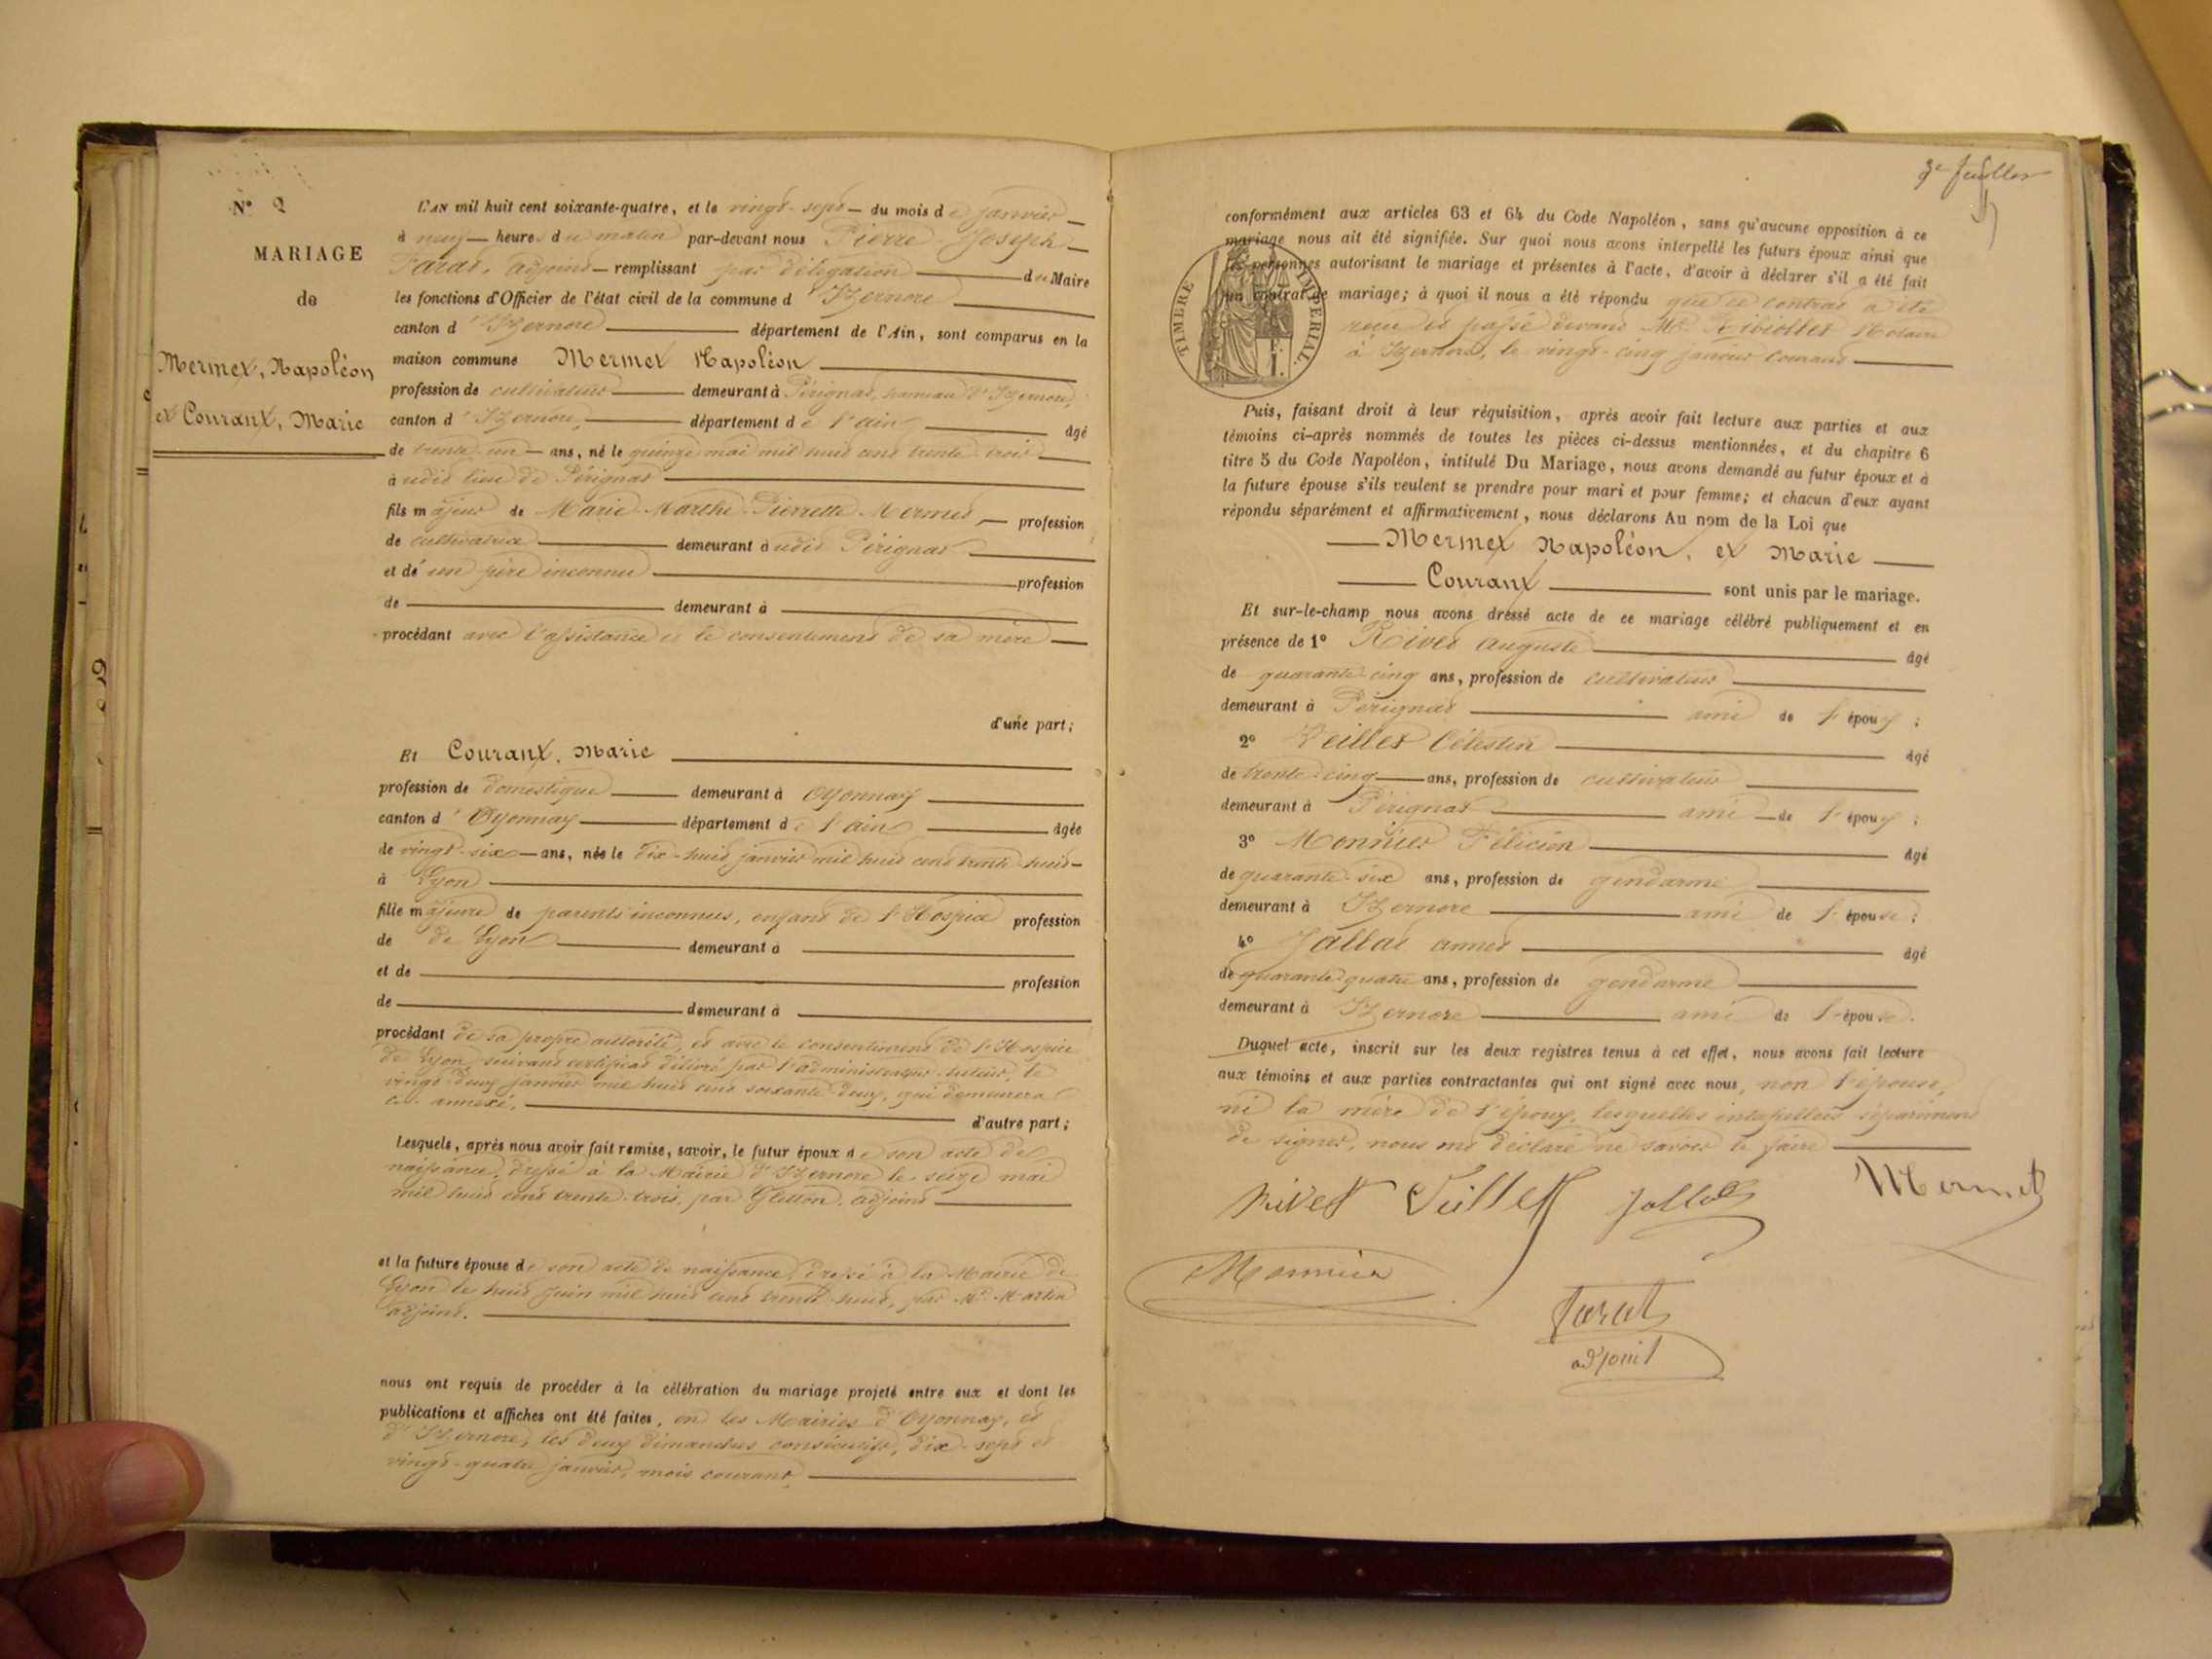 Nº 2
MARIAGE
de
Mermet, Napoléon
et Courant, Marie
L'AN mil huit cent soixante-quatre, et le vingt-sept du mois de janvier
à neuf heures du matin par-devant nous Pierre Joseph
Farat, adjoint remplissant par délégation du Maire
les fonctions d'Officier de l'état civil de la commune d'Izernore
canton d'Izernore département de l'Ain, sont comparus en la
maison commune Mermet Napoléon
profession de cultivateur demeurant à Pérignat, hameau d'Izernore,
canton d'Izernore, département de l'ain âgé
de trente un ans, né le quinze mai mil huit cent trente trois
à udit lieu de Pérignat
fils majeur de Marie Marthe Pierrette Mermet, profession
de cultivatrice demeurant à udit Pérignat
et d'un père inconnu profession
de demeurant à
procédant avec l'assistance et le consentement de sa mère
d'une part;
Et Courant, Marie
profession de domestique demeurant à Oyonnax
canton d'Oyonnax département de l'ain âgée
de vingt-six ans, née le dix-huit janvier mil huit cent trente huit
à Lyon
fille majeure de parents inconnus, enfant de l'Hospice profession
de de Lyon demeurant à
et de profession
de demeurant à
procédant de sa propre autorité, et avec le consentement de l'Hospice
de Lyon, suivant certificat délivré par l'administrateur-tuteur, le
vingt deux janvier mil huit cent soixante deux, qui demeurera
ci-annexé. d'autre part;
Lesquels, après nous avoir fait remise, savoir, le futur époux de son acte de
naissance, dressé à la Mairie d'Izernore le seize mai
mil huit cent trente-trois, par Gletton, adjoint
et la future épouse de son acte de naissance, dressé à la Mairie de
Lyon le huit juin mil huit cent trente huit, par Mr. Martin
adjoint.
nous ont requis de procéder à la célébration du mariage projeté entre eux et dont les
publications et affiches ont été faites, en les Mairies d'Oyonnax, et
d'Izernore, les deux dimanches consécutifs, dix-sept et
vingt-quatre janvier, mois courant,
3e feuillet
conformément aux articles 63 et 64 du Code Napoléon, sans qu'aucune opposition à ce
mariage nous ait été signifiée. Sur quoi nous avons interpellé les futurs époux ainsi que
les personnes autorisant le mariage et présentes à l'acte, d'avoir à déclarer s'il a été fait
un contrat de mariage; à quoi il nous a été répondu que ce contrat a été
reçu et passé devant Me. Ribiollet Notaire
à Izernore, le vingt-cinq janvier courant
TIMBRE IMPERIAL.
Puis, faisant droit à leur réquisition, après avoir fait lecture aux parties et aux
témoins ci-après nommés de toutes les pièces ci-dessus mentionnées, et du chapitre 6
titre 5 du Code Napoléon, intitulé Du Mariage, nous avons demandé au futur époux et à
la future épouse s'ils veulent se prendre pour mari et pour femme; et chacun d'eux ayant
répondu séparément et affirmativement, nous déclarons Au nom de la Loi que
Mermet Napoléon, et Marie
Courant sont unis par le mariage.
Et sur-le-champ nous avons dressé acte de ce mariage célébré publiquement et en
présence de 1º Rivet Auguste âgé
de quarante-cinq ans, profession de cultivateur
demeurant à Pérignat ami de l'époux;
2º Veillet Célestin âgé
de trente-cinq ans, profession de cultivateur
demeurant à Pérignat ami de l'époux;
3º Monnier Félicien âgé
de quarante-six ans, profession de gendarme
demeurant à Izernore ami de l'épouse;
4º Jallat âgé
de quarante-quatre ans, profession de gendarme
demeurant à Izernore ami de l'épouse.
Duquel acte, inscrit sur les deux registres tenus à cet effet, nous avons fait lecture
aux témoins et aux parties contractantes qui ont signé avec nous, non l'épouse,
ni la mère de l'époux, lesquelles interpellées séparément
de signer, nous ont déclaré ne savoir le faire
Rivet Veillet Jallat Mermet
Monnier
Farat
adjoint